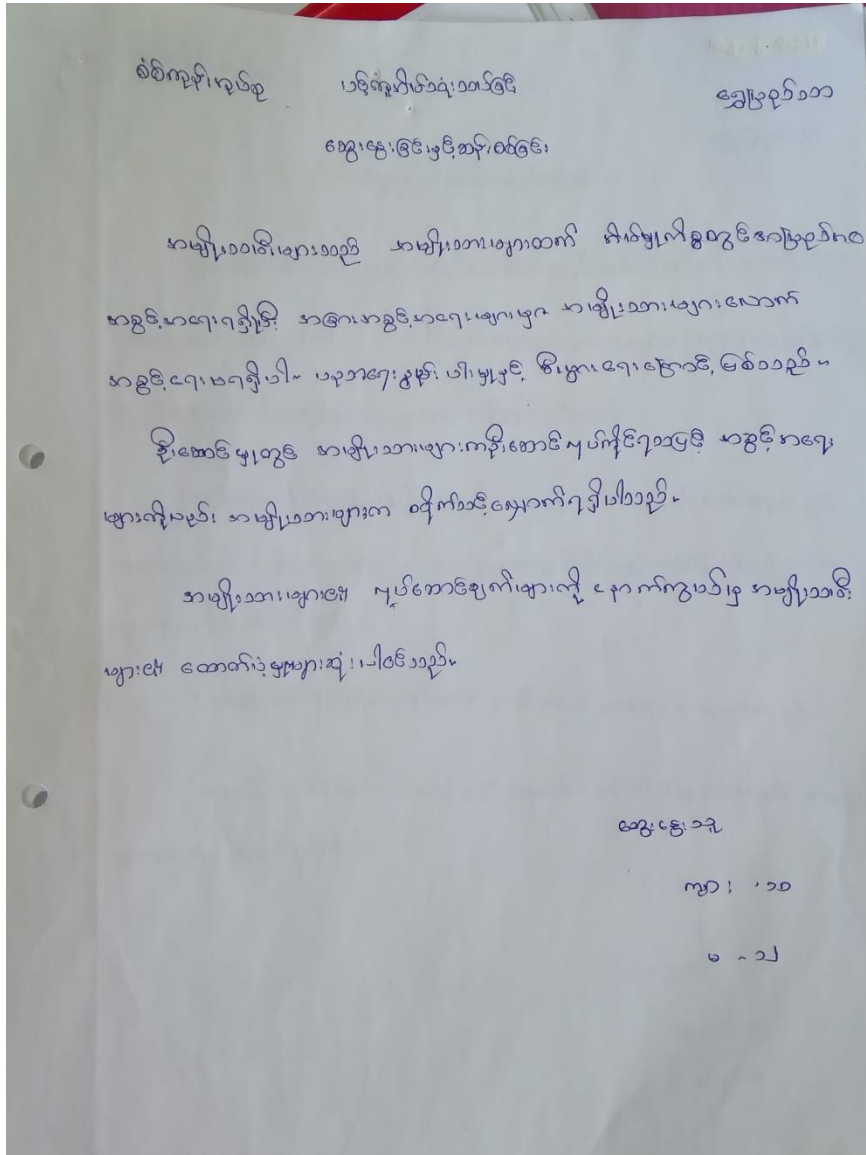 စံစ်ကုန်းအုပ်စု ပင့်ကူအိမ်သုံးသပ်ခြင်း ရွှေပြည်သာ
ဆွေးနွေးခြင်းနှင့်ဆန်းစစ်ခြင်း
အမျိုးသမီးများသည် အမျိုးသားများထက် အိမ်မှုကိစ္စတွင်
အခွင့်အရေးရရှိပြီး အခြားအခွင့်အရေးများမှာ အမျိုးသားများလောက်
အခွင့်ရေးမရရှိပါ။ ပညာရေးနွမ်းပါးမှုနှင့် စီးပွားရေးကြောင့်ဖြစ်သည်။
ဦးဆောင်မှုတွင် အမျိုးသားများကဦးဆောင်လုပ်ကိုင်ရသဖြင့် အခွင့်အရေး
များကိုလည်း အမျိုးသားများက ပိုက်သင့်လျှောက်ရရှိပါသည်။
အမျိုးသားများ၏ လုပ်ဆောင်ချက်များကို နောက်ကွယ်မှ အမျိုးသမီး
များ၏ ထောက်ပံ့မှုများဆုံးပါဝင်သည်။
ဆွေးနွေးသူ
ကျား - ၁၁
မ - ၁၂